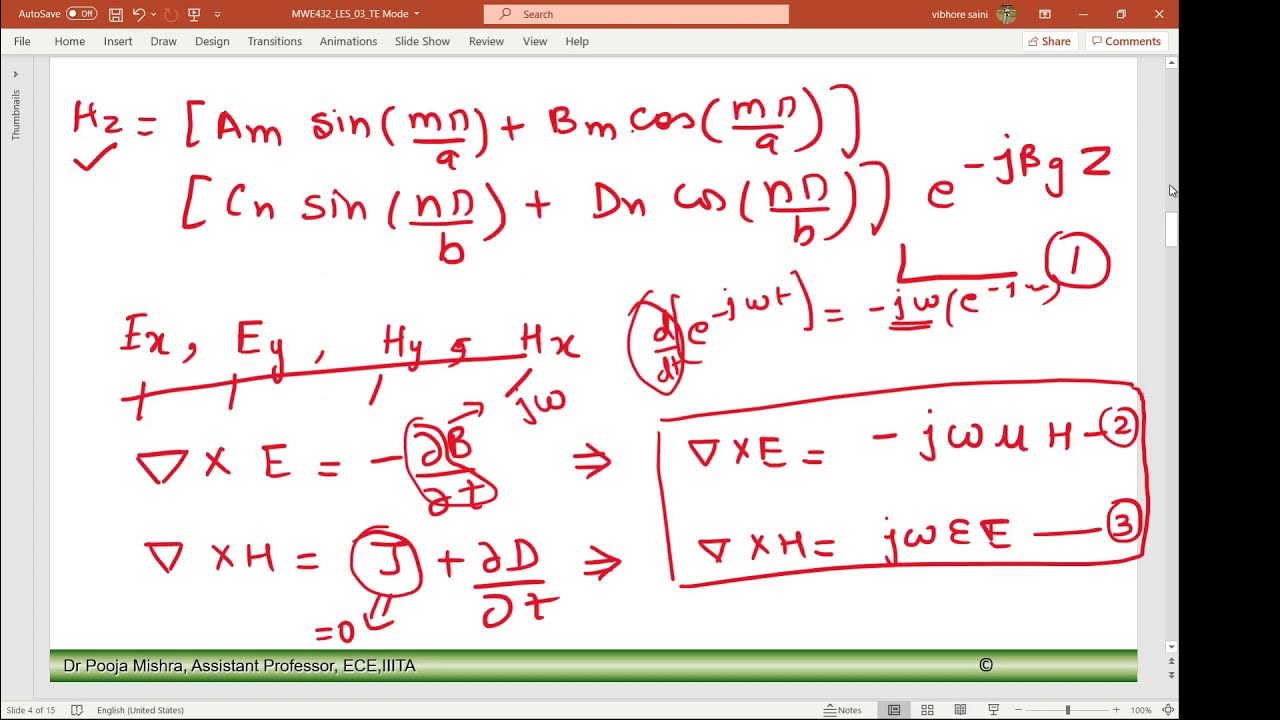 AutoSave Off MWE432_LES_03_TE Mode Search vibhore saini
File Home Insert Draw Design Transitions Animations Slide Show Review View Help Share Comments
Thumbnails
Hz = [Am sin(mπ/a) + Bm cos(mπ/a)]
[Cn sin(nπ/b) + Dn cos(nπ/b)] e^-jβg z
1
Ex, Ey, Hy, Hx
d/dt[e^-jωt] = -jω(e^-j
jω
∇ X E = -∂B/∂t ⇒ ∇ X E = -jωμH — 2
∇ X H = J + ∂D/∂t ⇒ ∇ X H = jωεE — 3
=0
Dr Pooja Mishra, Assistant Professor, ECE,IIITA ©
Slide 4 of 15 English (United States) Notes 100%